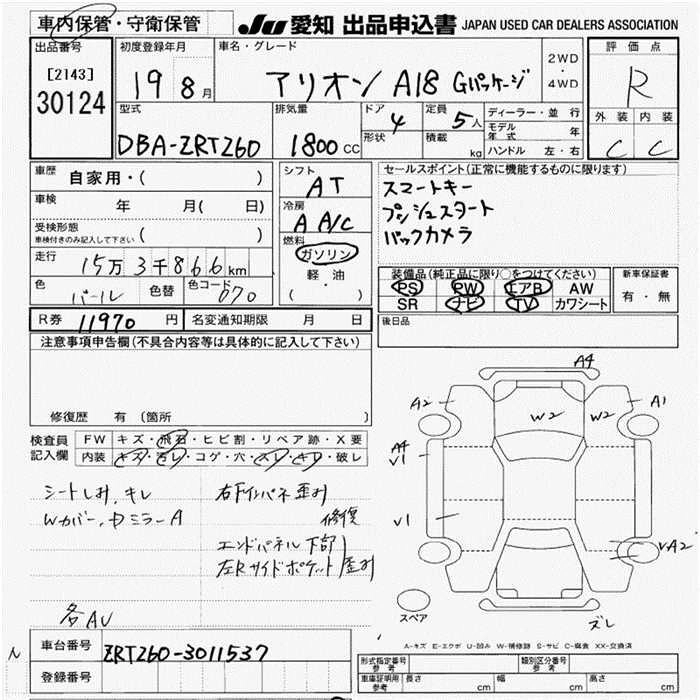 車内保管・守衛保管
JU 愛知 出品申込書 JAPAN USED CAR DEALERS ASSOCIATION
出品番号
[2143]
30124
初度登録年月
19 8月
車名・グレード
アリオン A18 Gパッケージ
2WD
・
4WD
評価点
R
外装 内装
C C
型式
DBA-ZRT260
排気量
1800CC
ドア
4
形状
定員
5人
積載
kg
ディーラー・並 行
モデル年式 年
ハンドル 左・右
車歴 自家用・( )
車検 年 月( 日)
受検形態
車検付きのみ記入して下さい ( )
走行 15万3千866km
色 パール 色替 色コード 070
シフト
AT
冷房
A A/C
燃料
ガソリン
軽・油
( )
セールスポイント(正常に機能するものに限ります)
スマートキー
プッシュスタート
バックカメラ
装備品(純正品に限り○をつけてください)
PS PW エアB AW
SR ナビ TV カワシート
新車保証書
有・無
R券 11970円 名変通知期限 月 日
後日品
注意事項申告欄(不具合内容等は具体的に記入して下さい)
修復歴 有(箇所 )
検査員記入欄
FW キズ・飛石・ヒビ割・リペア跡・X要
内装 キズ・汚レ・コゲ・穴・スレ・キレ・破レ
シートしみ、キレ
Wカバー、中ミラーA
右下インパネ歪み
修復
エンドパネル下部
左Rサイドポケット 歪み
各AU
A4
A2
W2
W2
A1
A4
V1
V1
VA2
スペア
ズレ
A-キズ E-エクボ U-凹み W-補修跡 S-サビ C-腐食 XX-交換済
車台番号 ZRT260-3011537
登録番号
型式指定番号
参考
類別区分番号
参考
車庫証明用
参考
長さ cm
幅 cm
高さ cm